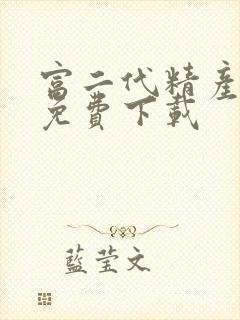 富二代精產
免費下載
藍莹文